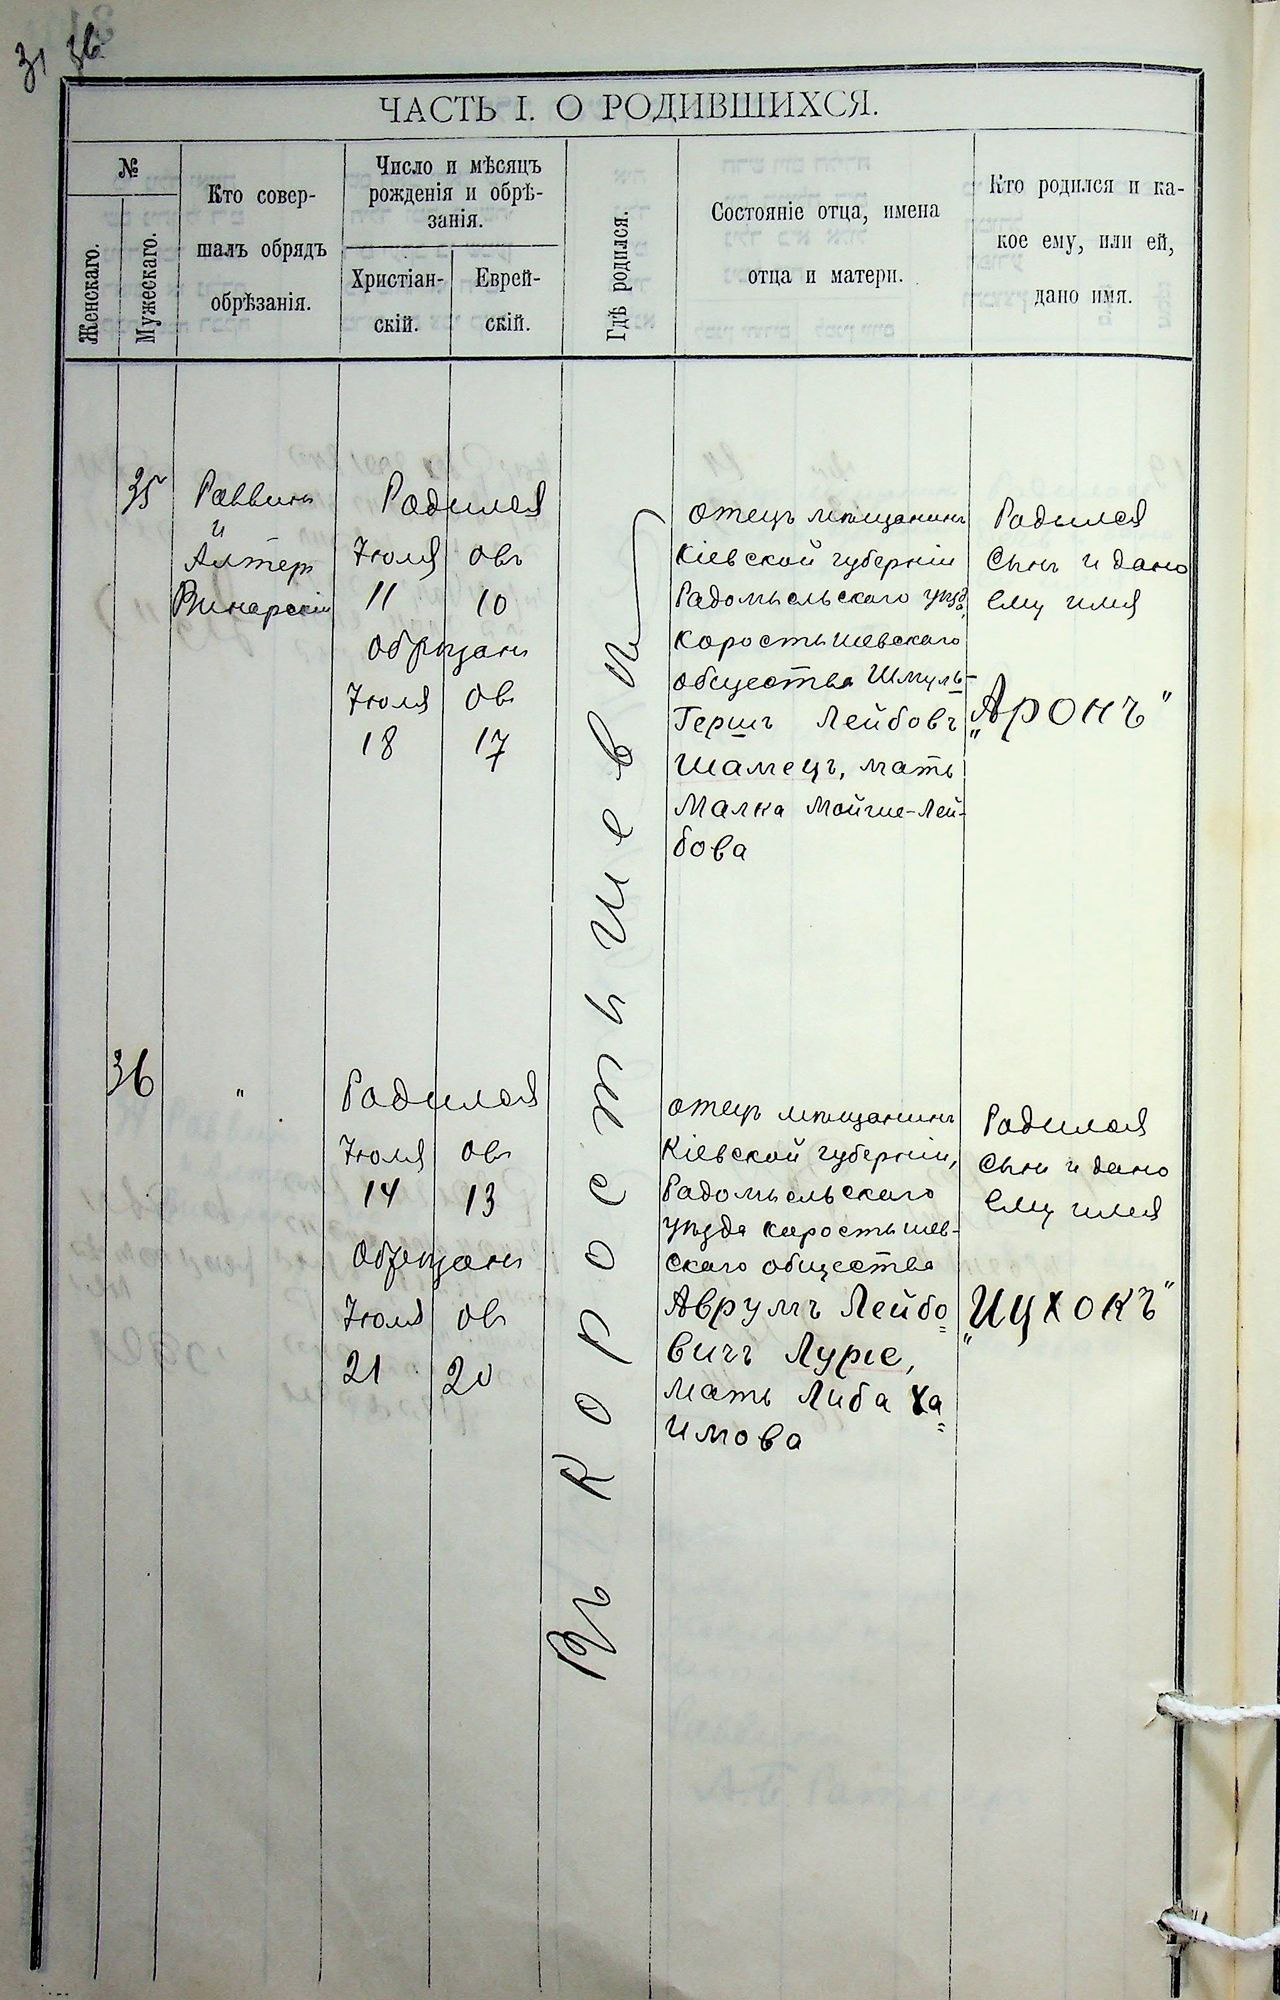 31 36
ЧАСТЬ I. О РОДИВШИХСЯ.
№
Женскаго.
Мужескаго.
Кто совер-
шалъ обрядъ
обрѣзанія.
Число и мѣсяцъ
рожденія и обрѣ-
занія.
Христіан-
скій.
Еврей-
скій.
Гдѣ родился.
Состояніе отца, имена
отца и матери.
Кто родился и ка-
кое ему, или ей,
дано имя.
35
Раввинъ
и
Алтеръ
Винарскій
Родился
Іюля Овъ
11 10
Обрѣзанъ
Іюля Ов
18 17
Въ Коростышевѣ
отецъ мѣщанинъ
Кіевской губерніи
Радомысльскаго уѣзда
Коростышевскаго
общества Шмуль-
Гершъ Лейбовъ
Шамецъ, мать
Малка Мойше-Лей-
бова
Родился
Сынъ и дано
ему имя
„Аронъ"
36
"
Родился
Іюля Ов
14 13
Обрѣзанъ
Іюля Ов
21 20
отецъ мѣщанинъ
Кіевской губерніи,
Радомысльскаго
уѣзда Коростышев-
скаго общества
Аврумъ Лейбо=
вичъ Лурiе,
мать Либа Ха=
имова
Родился
Сынъ и дано
ему имя
„Ицхокъ"